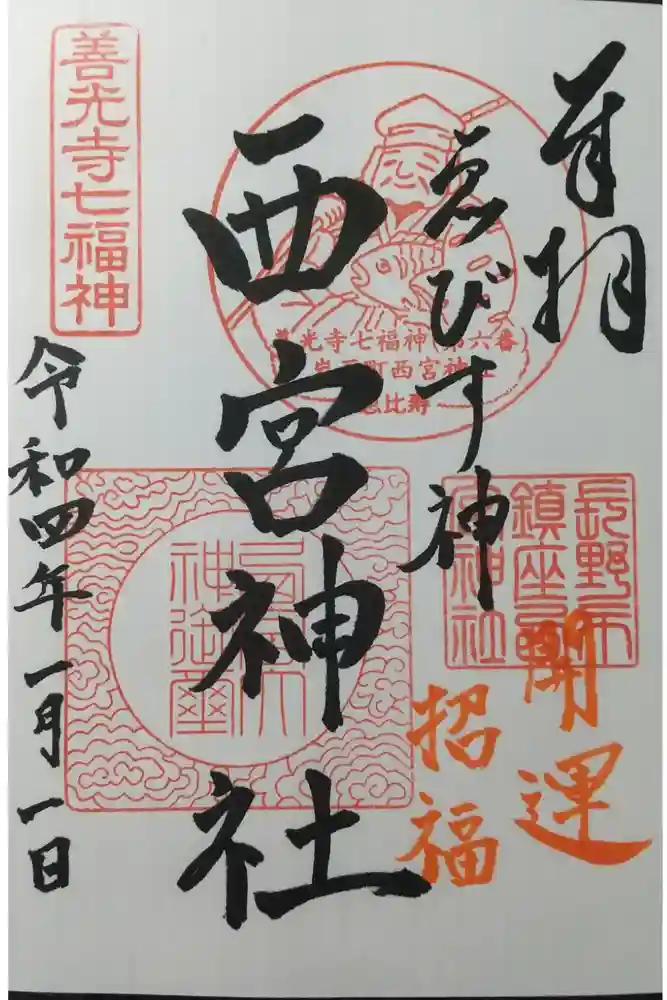 奉拝
ゑびす神
西宮神社
開運
招福
令和四年一月一日
善光寺七福神
善光寺七福神(第六番)
岩石町西宮神社
恵比寿
長野市
鎮座
宮神社
神御璽